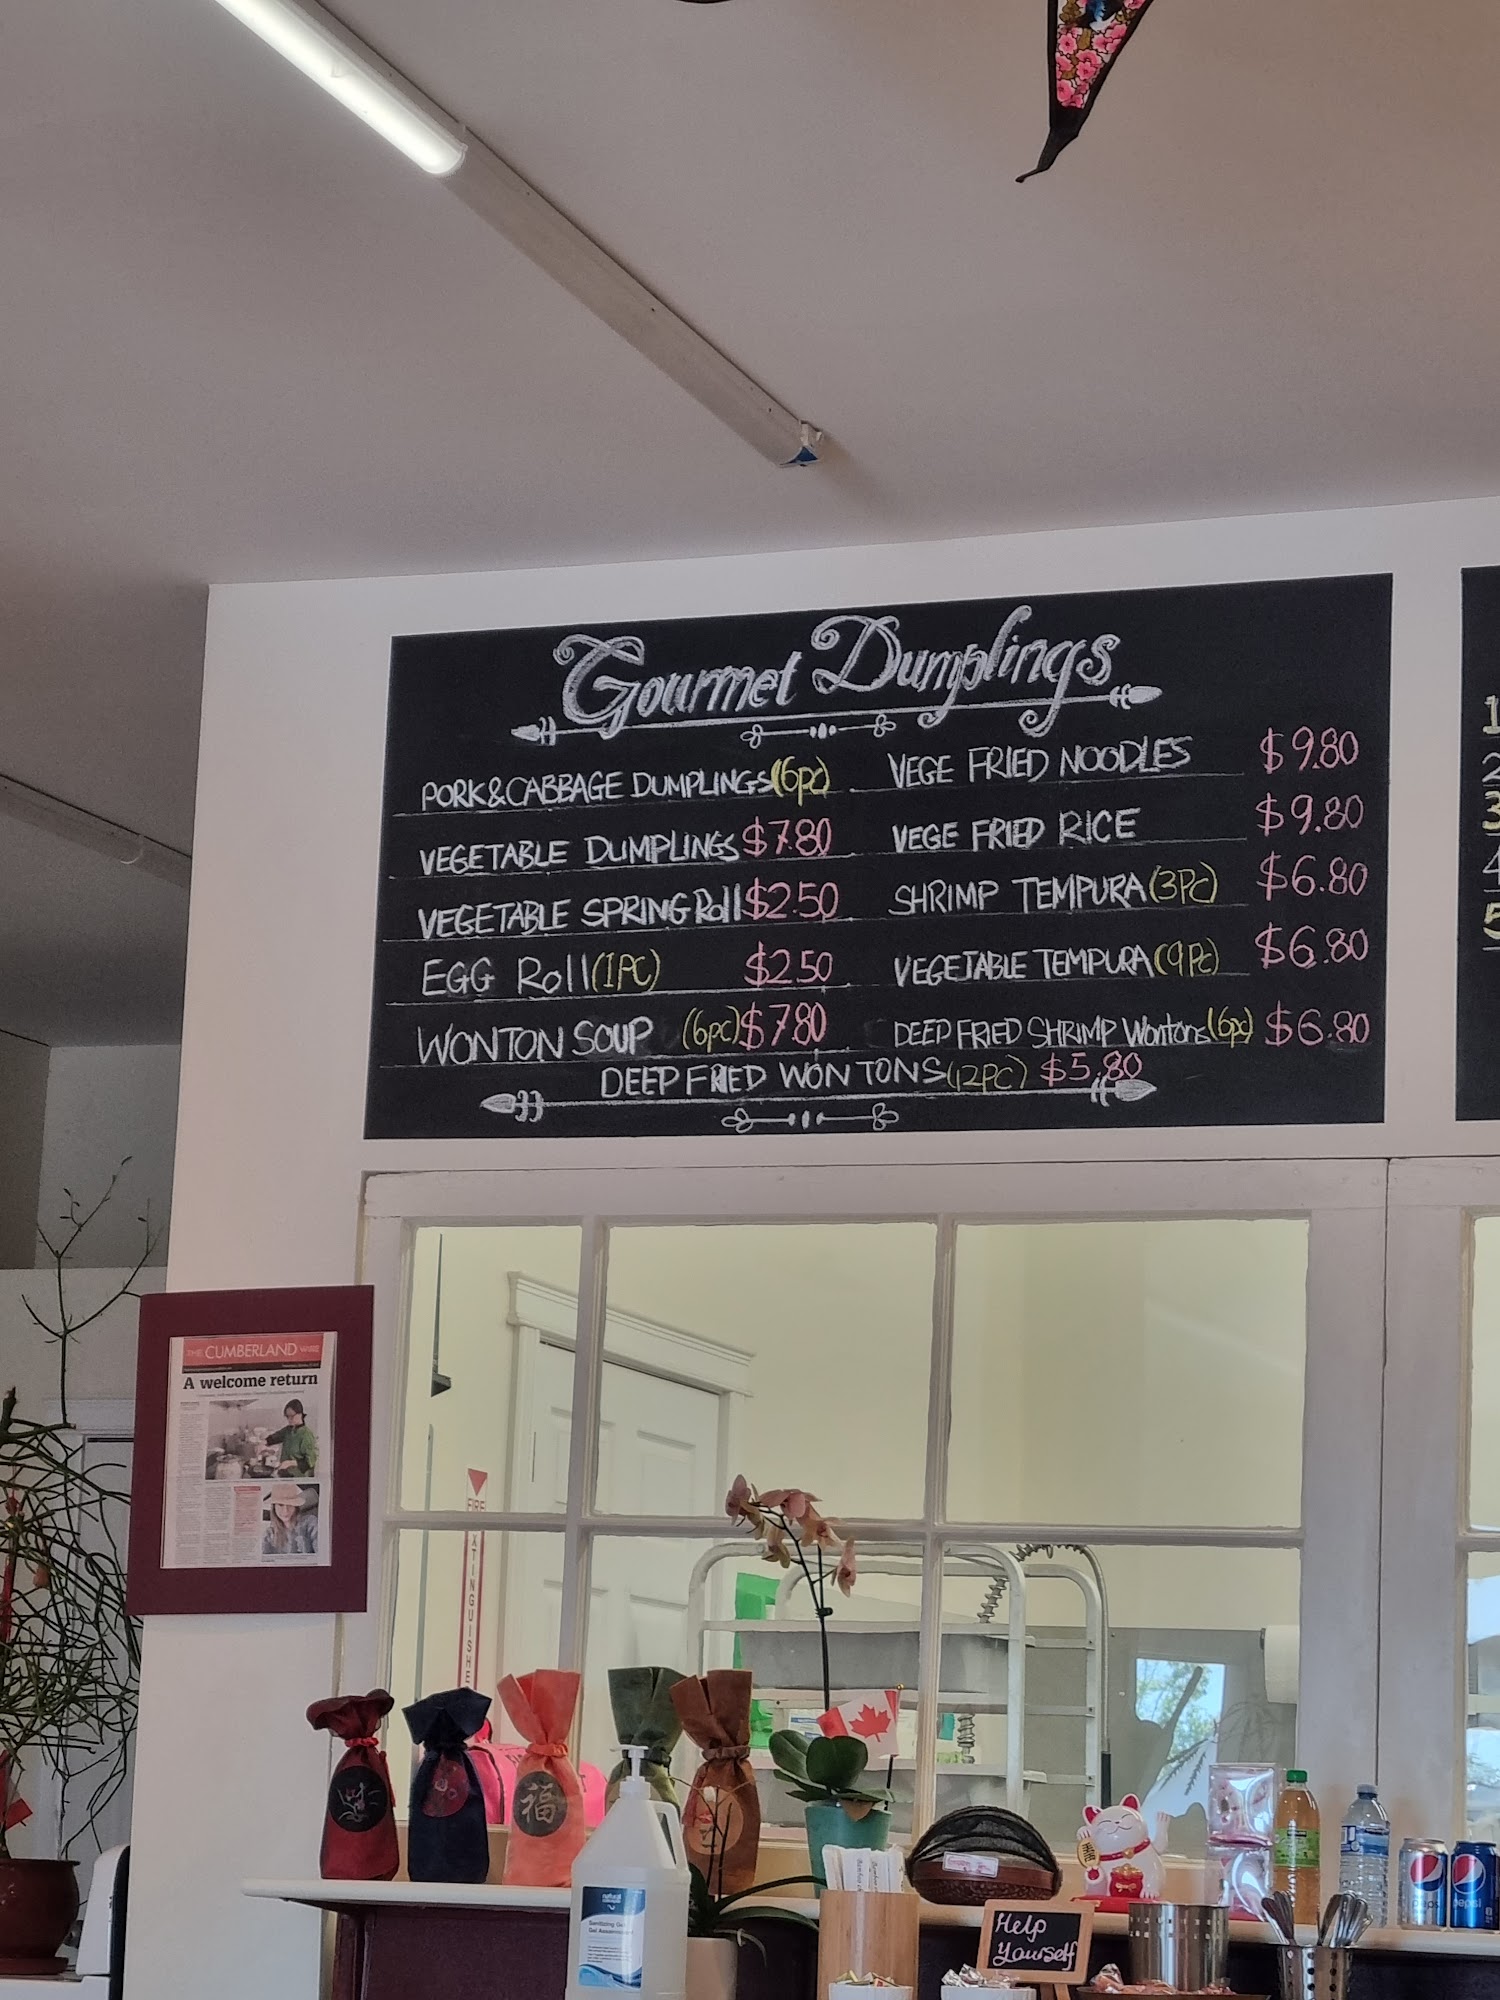 Gourmet Dumplings
PORK&CABBAGE DUMPLINGS(6pc)
VEGETABLE DUMPLINGS $7.80
VEGETABLE SPRING Roll $2.50
EGG Roll (1PC) $2.50
WONTON SOUP (6pc) $7.80
VEGE FRIED NOODLES $9.80
VEGE FRIED RICE $9.80
SHRIMP TEMPURA (3PC) $6.80
VEGETABLE TEMPURA (9PC) $6.80
DEEP FRIED SHRIMP Wontons (6pc) $6.80
DEEP FRIED WONTONS (12PC) $5.80
1
2
3
4
5
THE CUMBERLAND WIRE
A welcome return
FIRE
EXTINGUISHER
福
natural
Sanitizing Gel
Help
Yourself
pepsi
pepsi